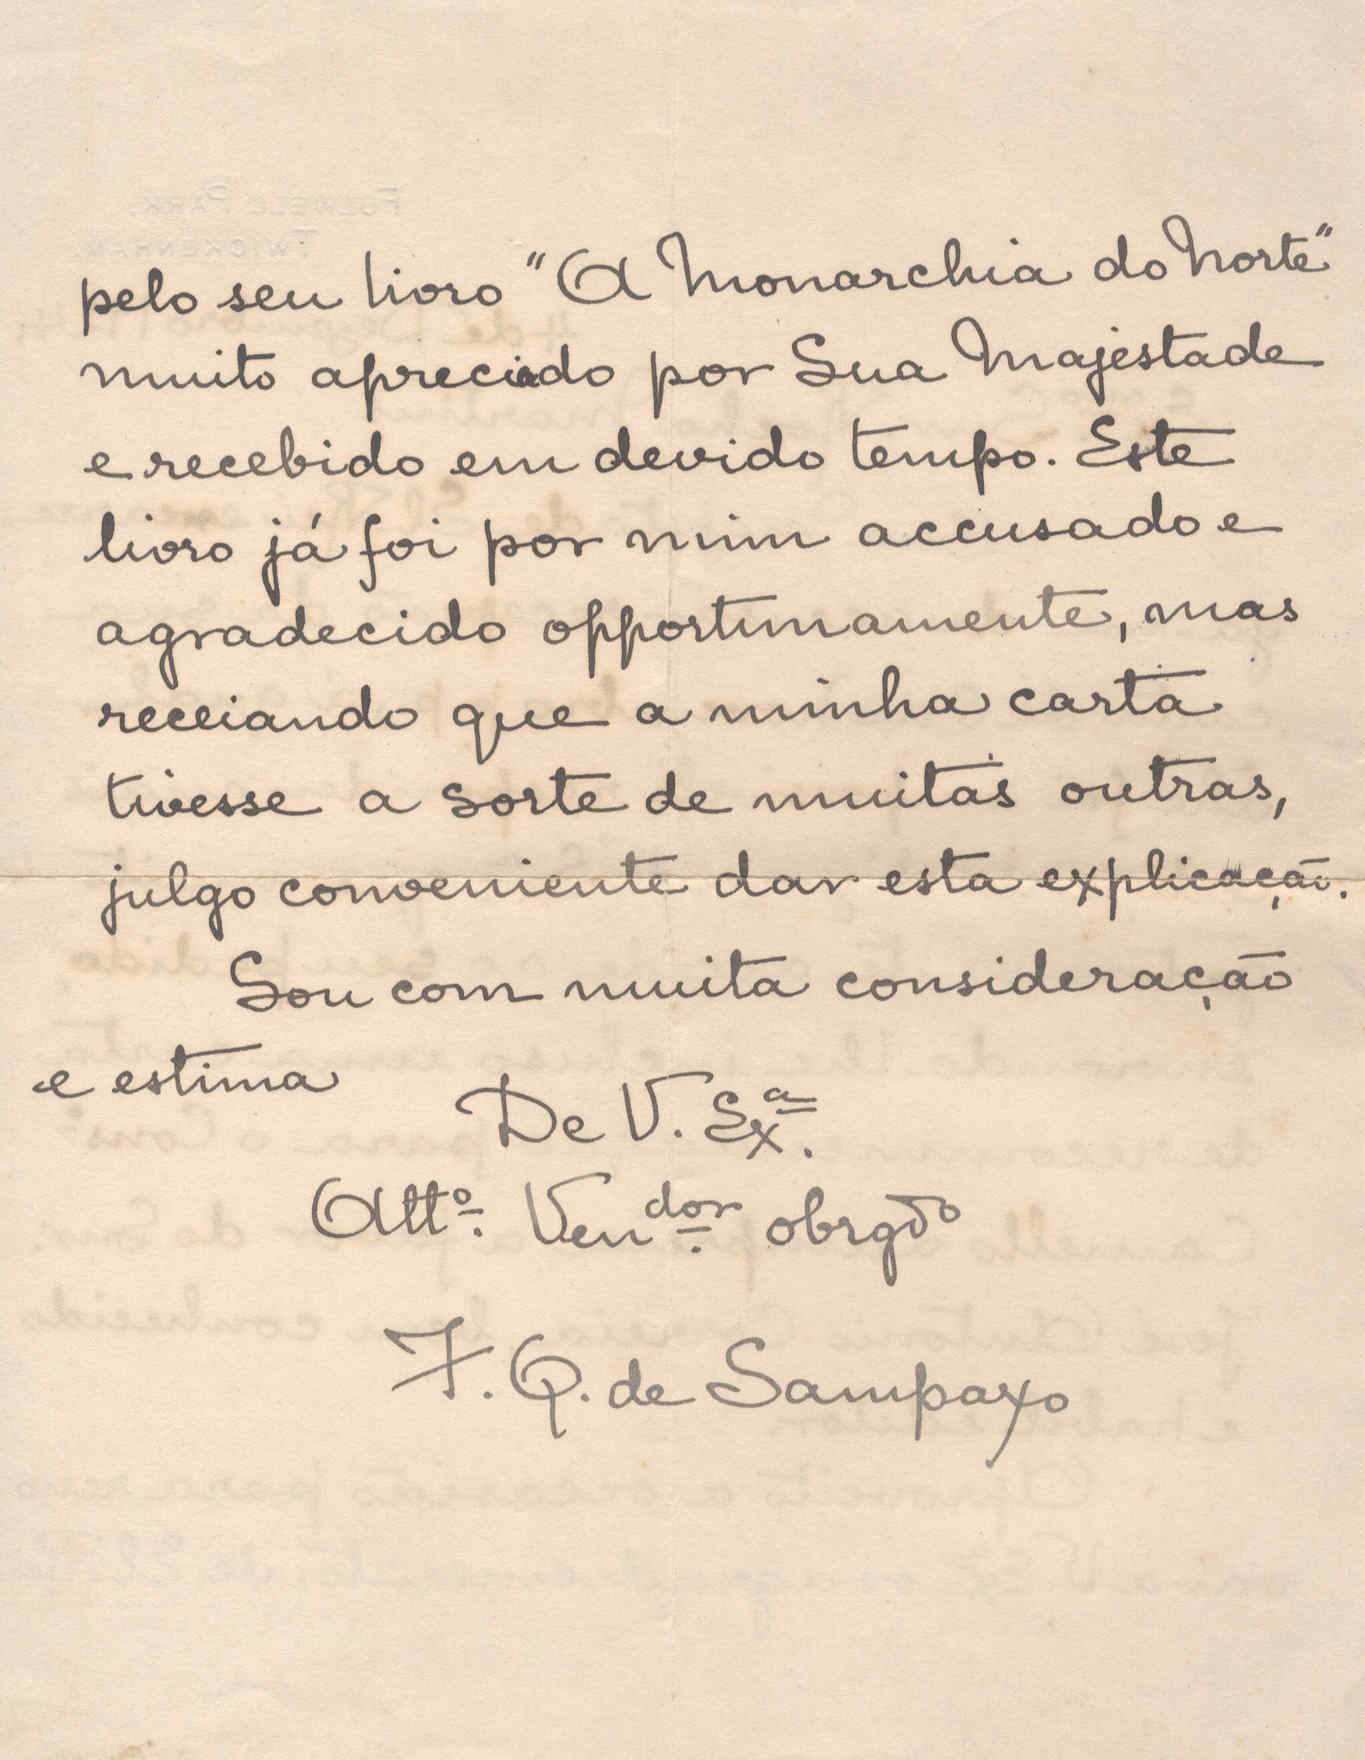 pelo seu livro "A Monarchia do Norte"
muito apreciado por Sua Majestade
e recebido em devido tempo. Este
livro já foi por mim accusado e
agradecido opportunamente, mas
receiando que a minha carta
tivesse a sorte de muitas outras,
julgo conveniente dar esta explicação.
Sou com muita consideração
e estima
De V. Exª.
Attº. Vendor. obrgdo
F. Q. de Sampayo